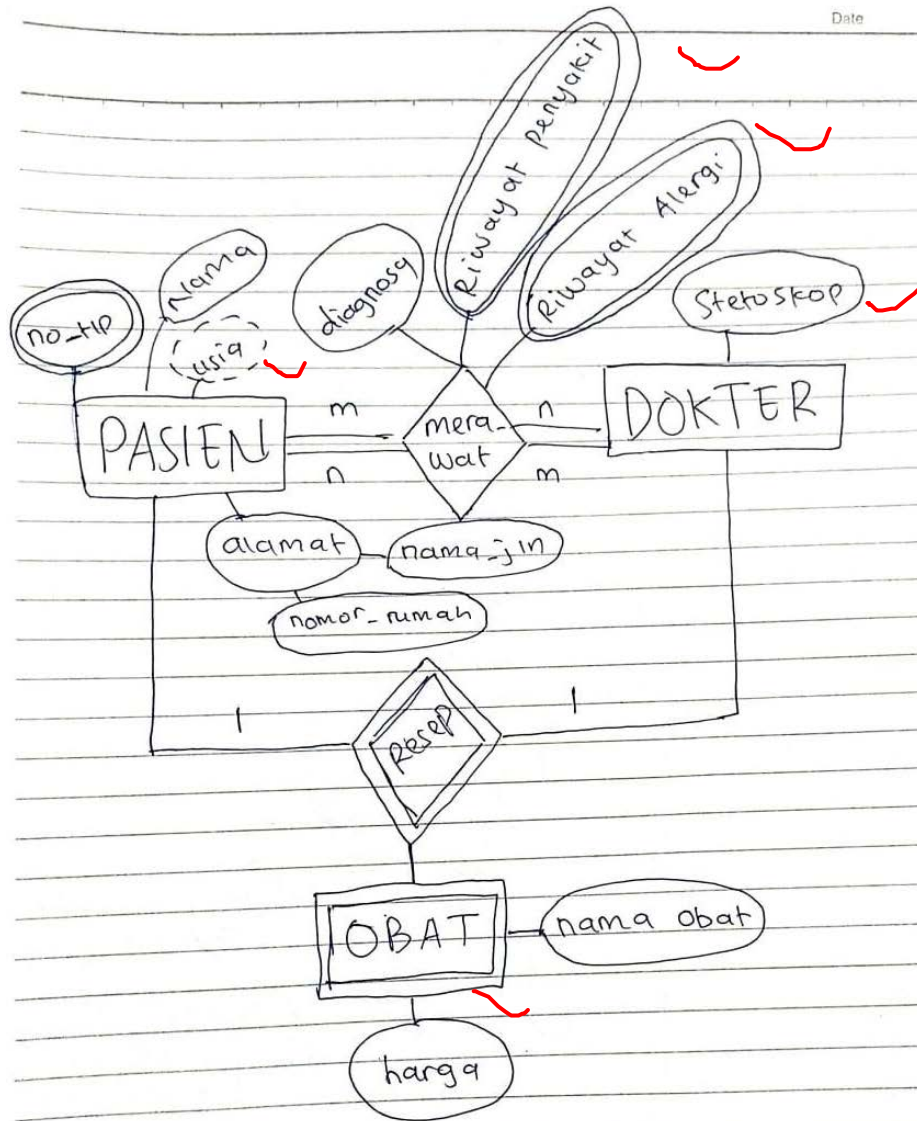 Date
Riwayat Penyakit
Riwayat Alergi
diagnosa
Nama
no_tlp
usia
Stetoskop
PASIEN
m
n
mera_
wat
n
m
DOKTER
alamat
nama_jln
nomor_rumah
1
1
Resep
OBAT
nama obat
harga